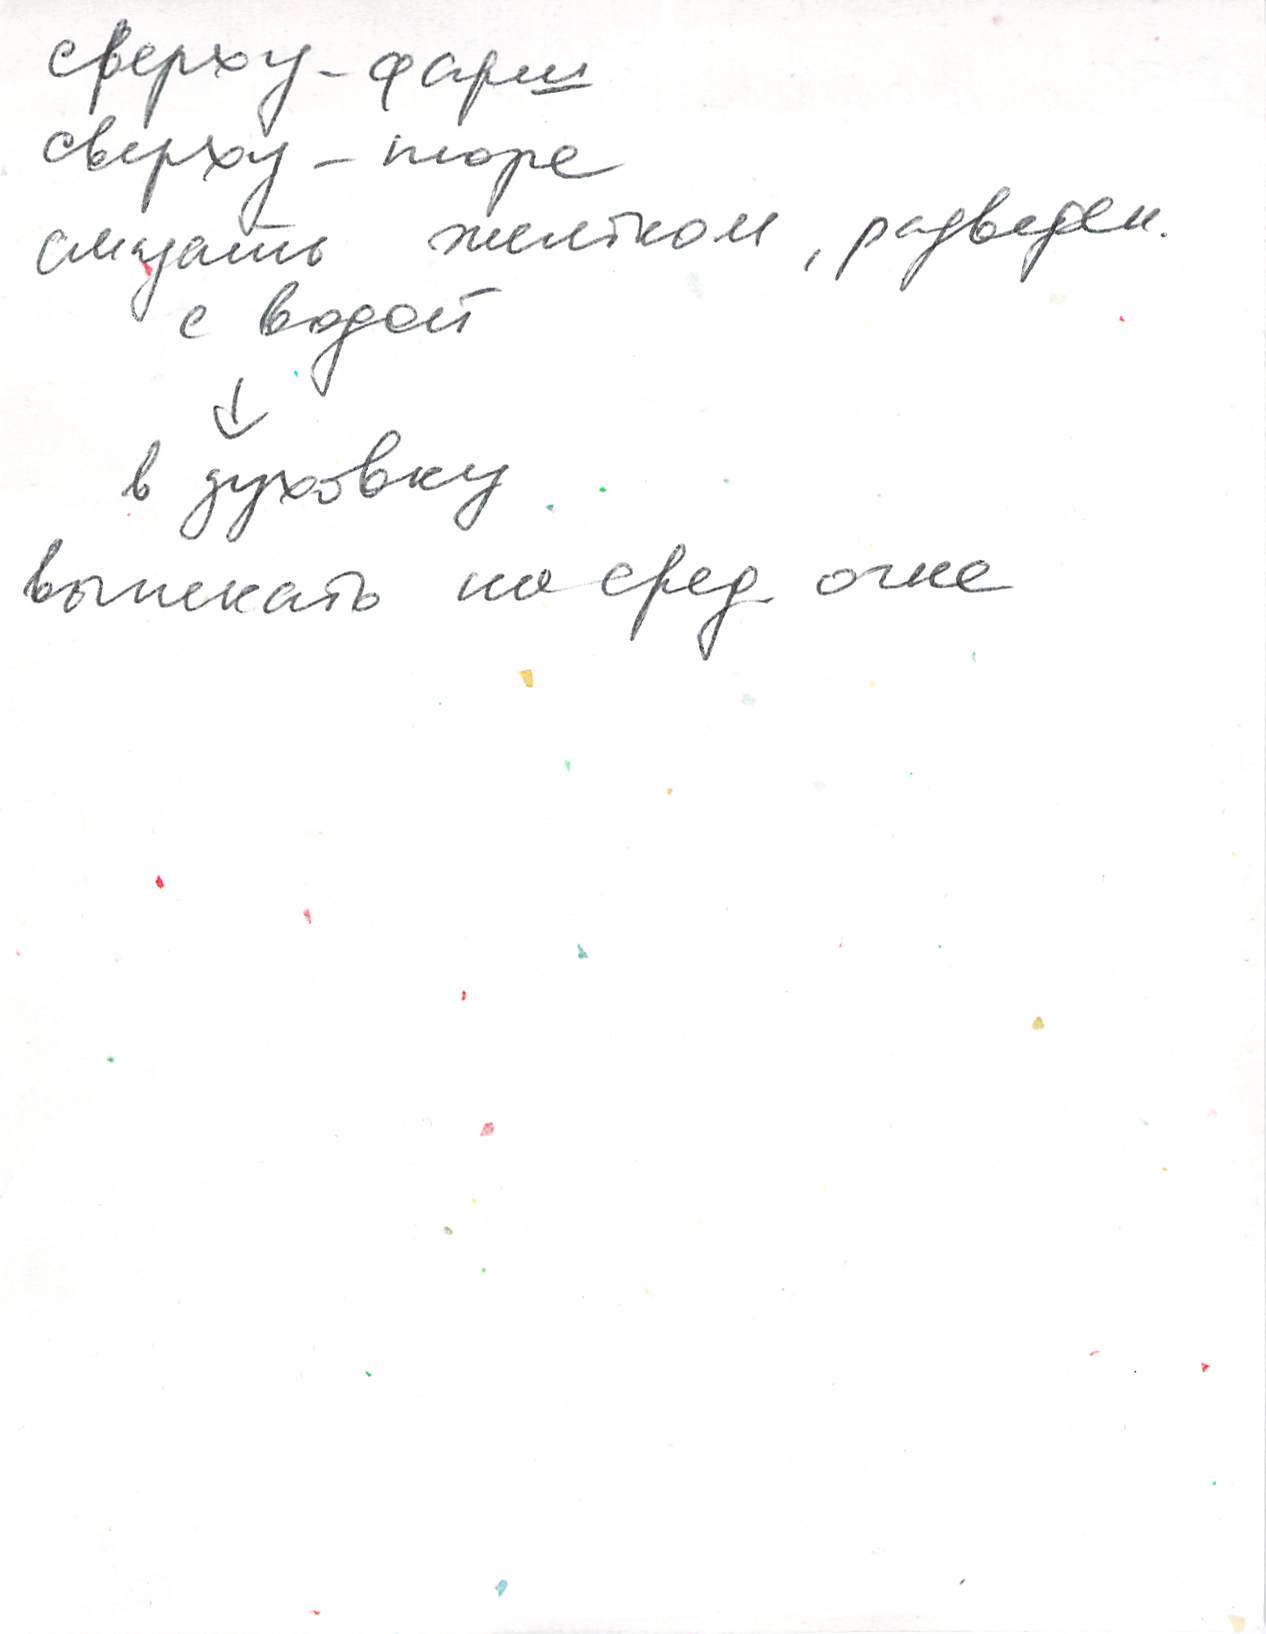 сверху - фарш
сверху - пюре
смазать желтком, разведен.
с водой
↓
в духовку
выпекать на сред. огне